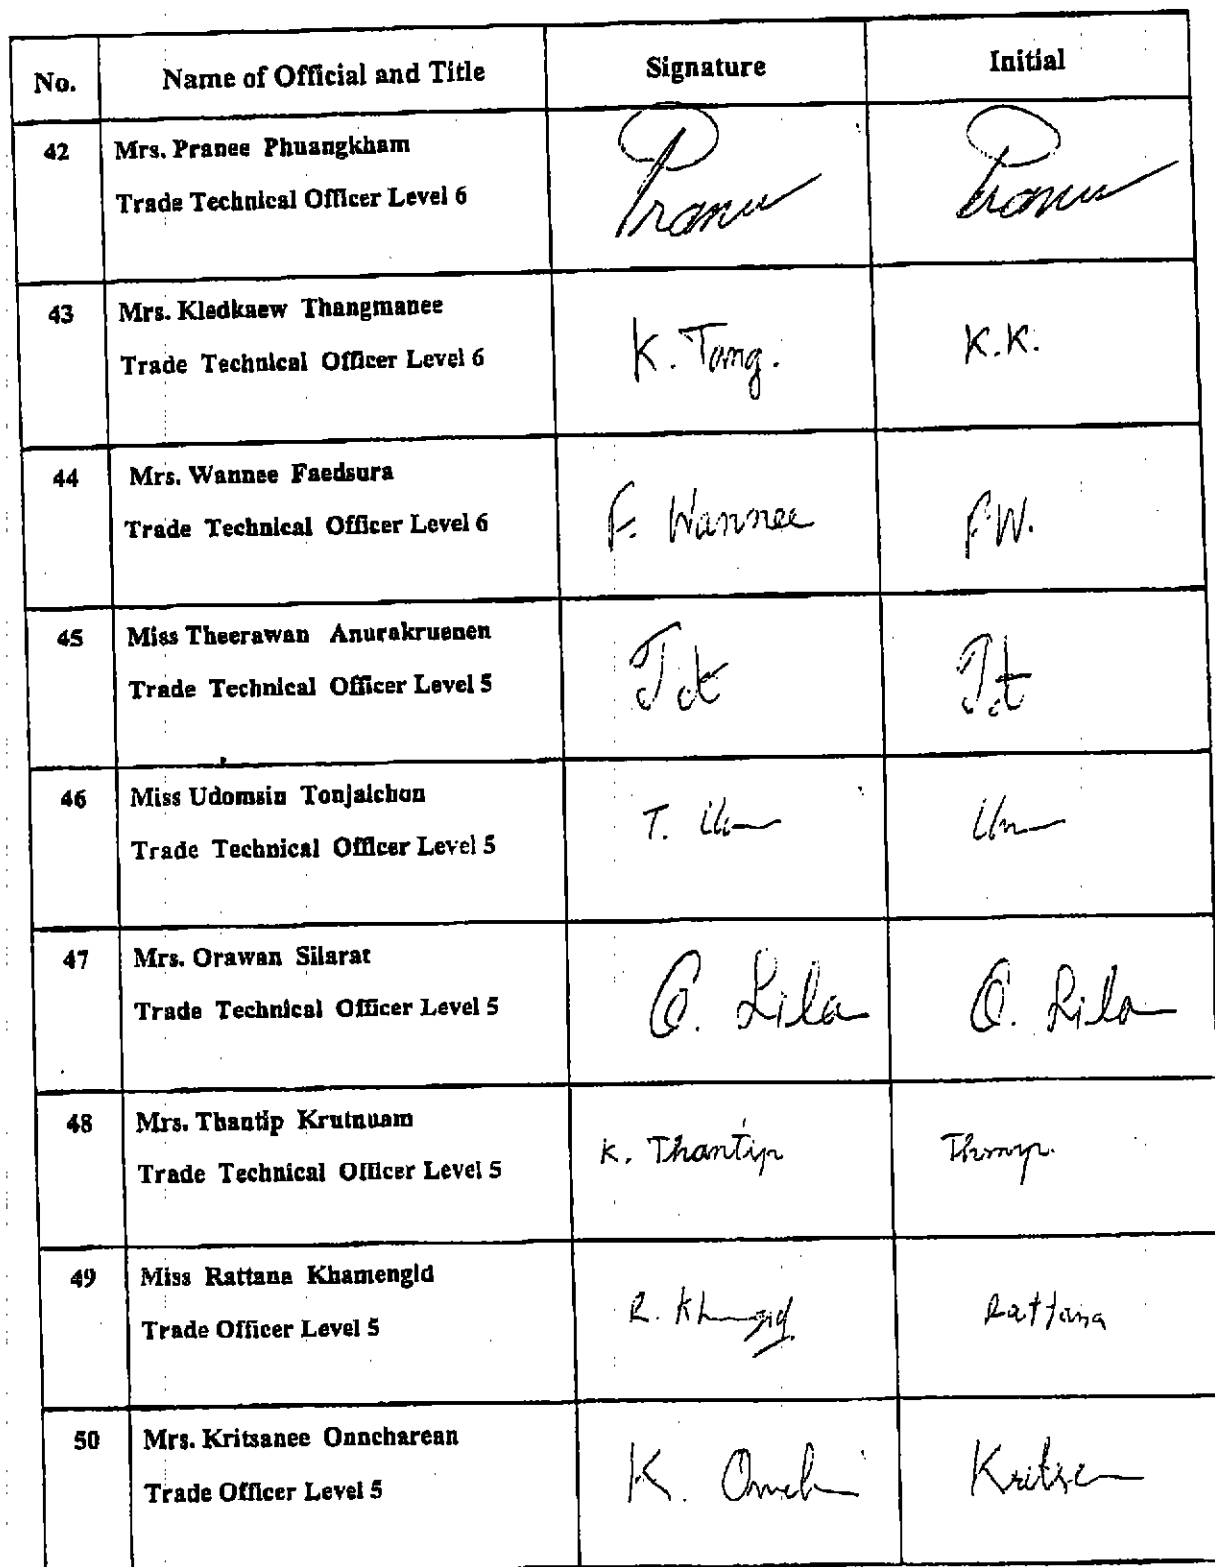 No. Name of Official and Title Signature Initial
42 Mrs. Pranee Phuangkham
Trade Technical Officer Level 6
43 Mrs. Kledkaew Thangmanee
Trade Technical Officer Level 6 K. Tang. K.K.
44 Mrs. Wannee Faedsura
Trade Technical Officer Level 6 F. Wannee F.W.
45 Miss Theerawan Anurakruenen
Trade Technical Officer Level 5
46 Miss Udomsin Tonjaichon
Trade Technical Officer Level 5 T.
47 Mrs. Orawan Silarat
Trade Technical Officer Level 5 O. Sila O. Sila
48 Mrs. Thantip Krutnuam
Trade Technical Officer Level 5 K. Thantip
49 Miss Rattana Khamengid
Trade Officer Level 5 R. Rattana
50 Mrs. Kritsanee Onncharean
Trade Officer Level 5 K.